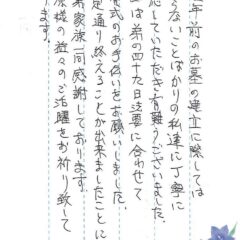 年前のお墓の建立に際しては
らないことばかりの私達に丁寧に
応していただき有難うございました。
は弟の四十九日法要に合わせて
式のお手伝いをお願いしました。
定通り終えることが出来ましたことに
家族一同感謝しております。
様の益々のご活躍をお祈り致して
ます。